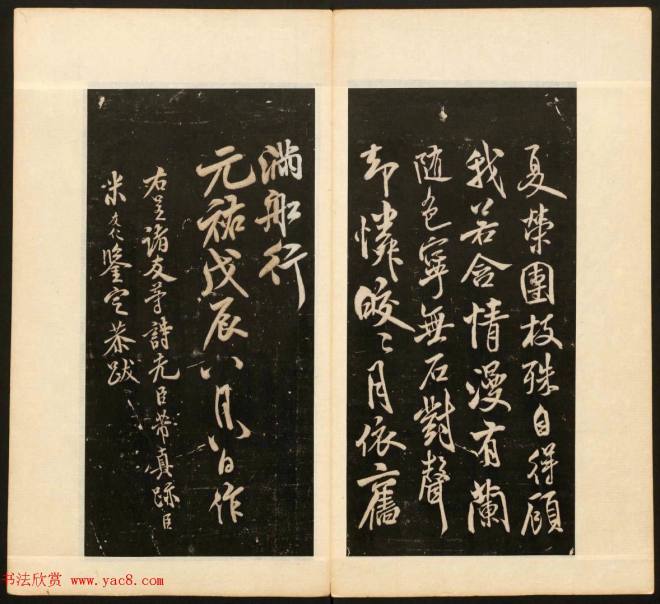 夏榮團枝殊自得顧
我若含情漫有蘭
隨色寧無石對聲
却憐皎々月依舊
滿船行
元祐戊辰八月八日作
右呈諸友等詩先臣芾真跡臣
米友仁鑒定恭跋
书法欣赏 www.yac8.com